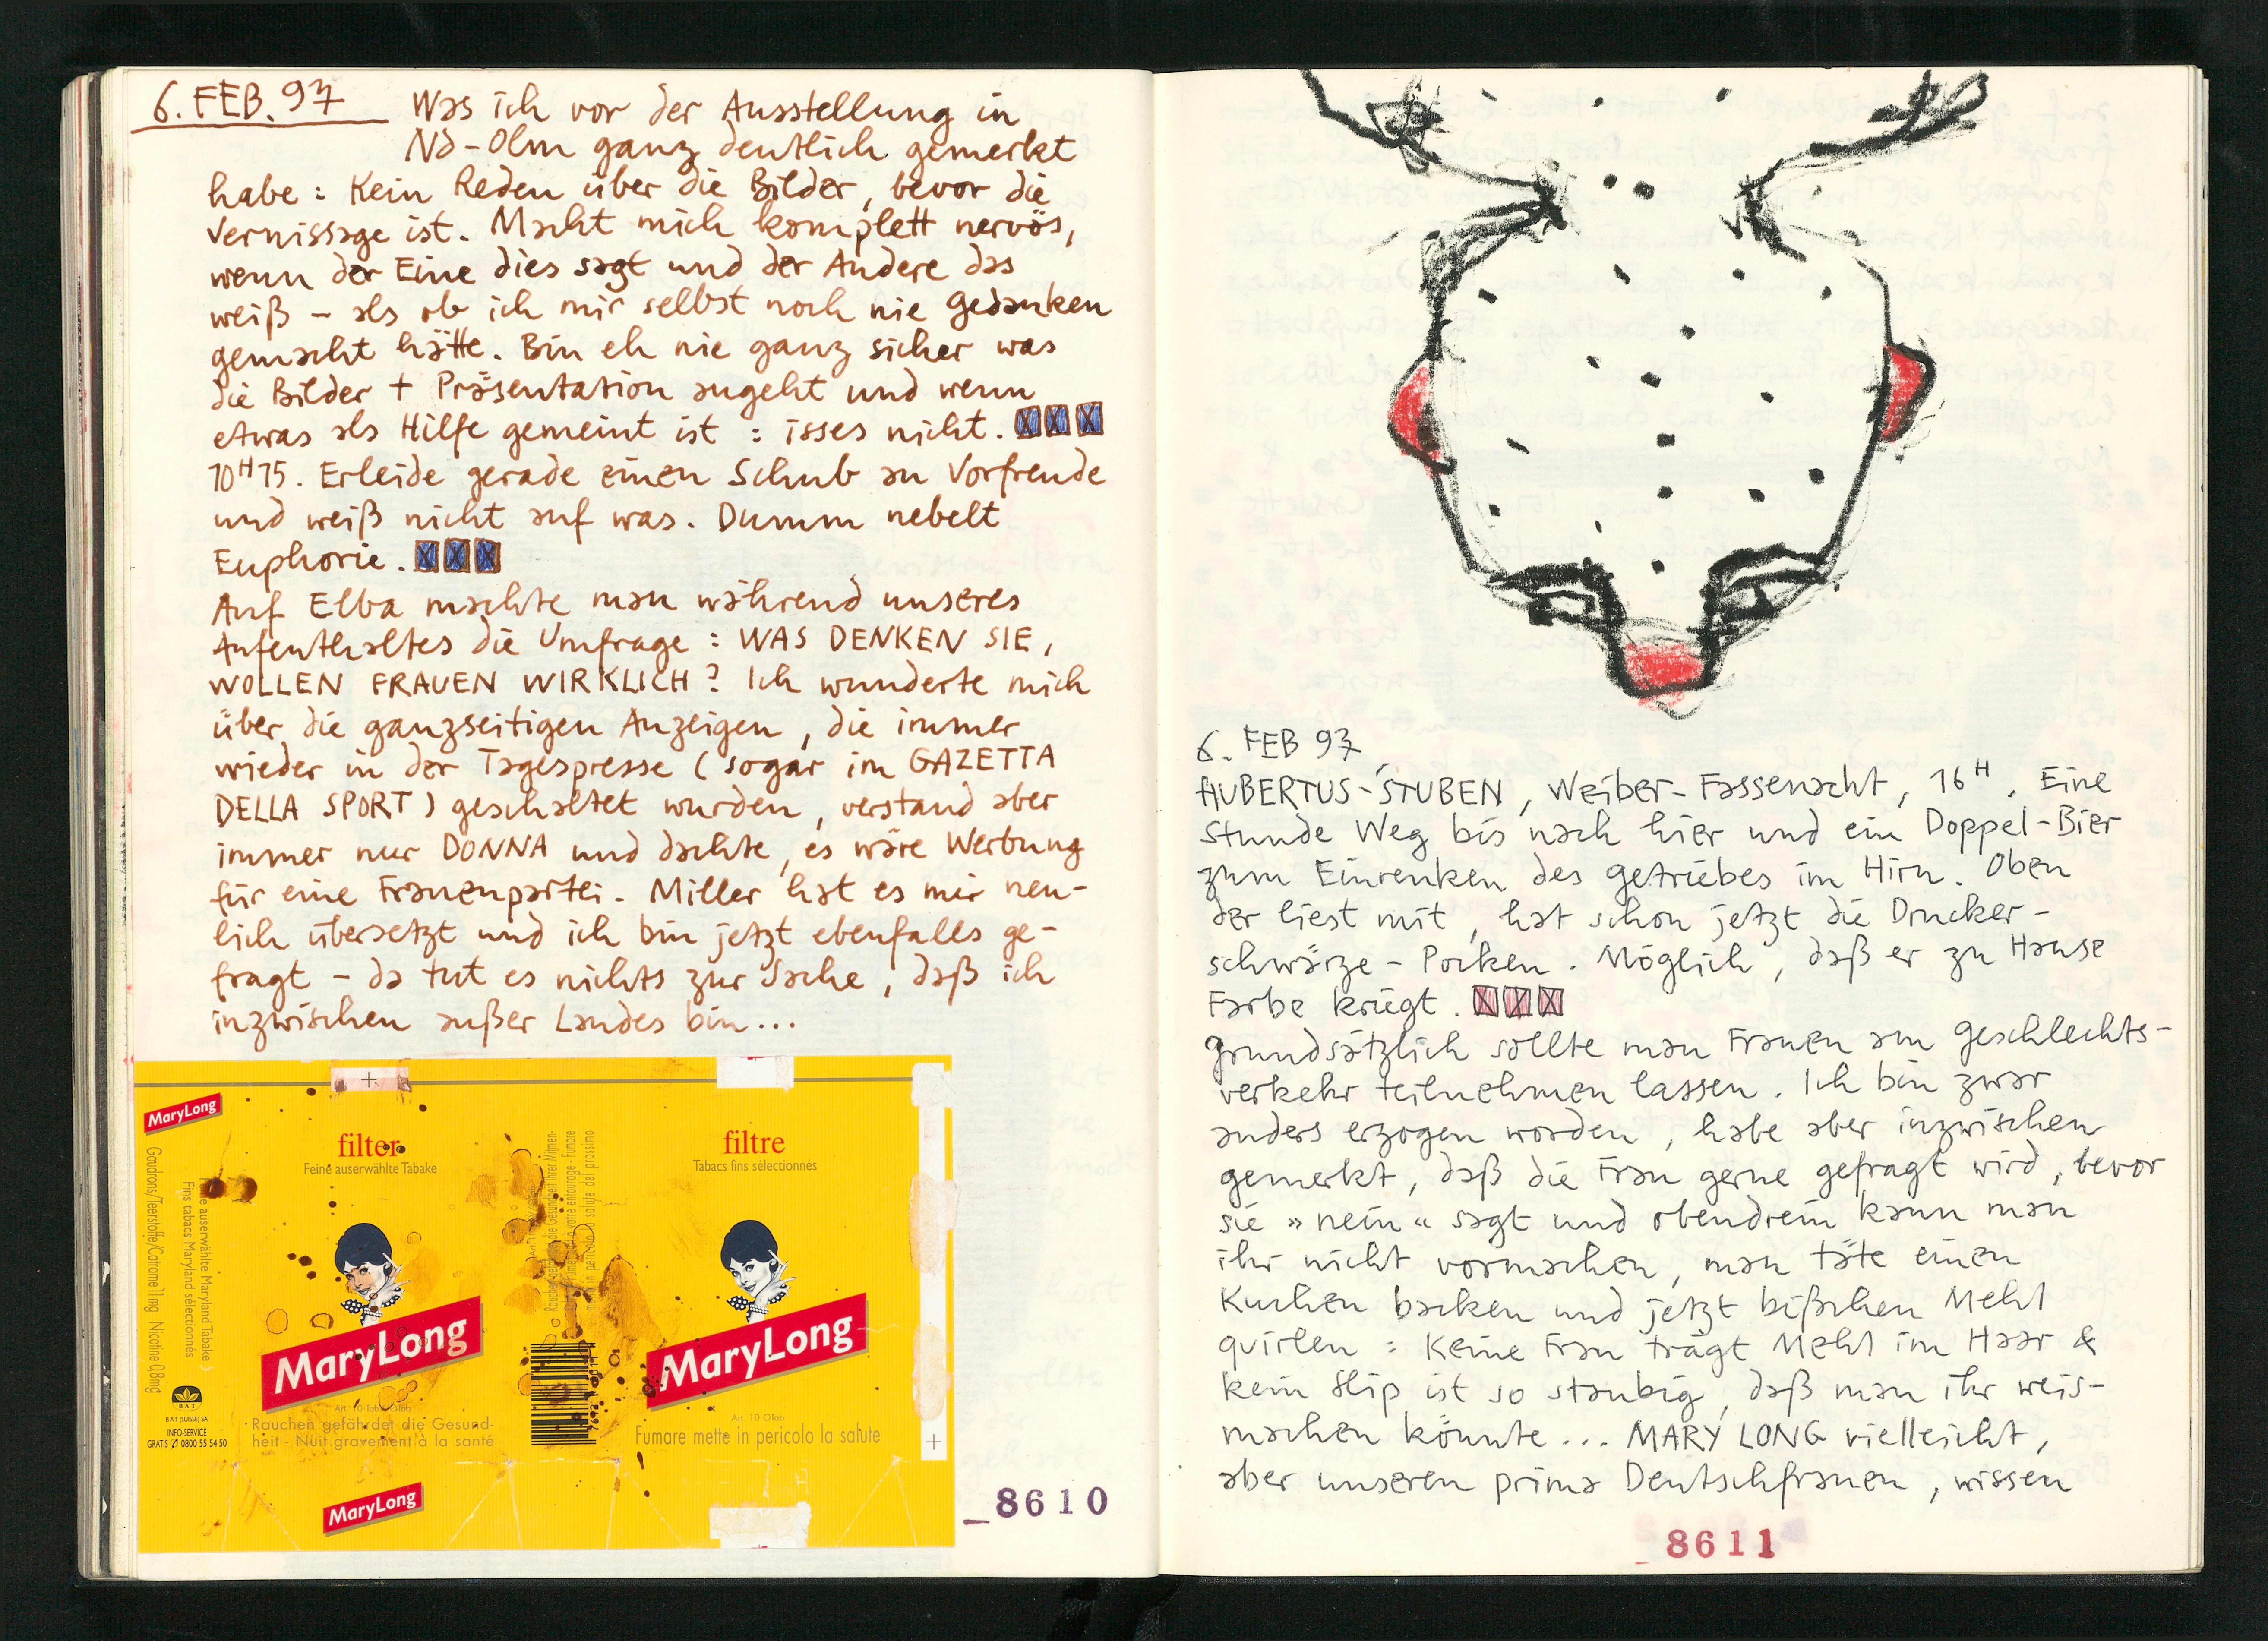 6. FEB. 97 Was ich vor der Ausstellung in
Nd-Olm ganz deutlich gemerkt
habe : Kein Reden über die Bilder, bevor die
Vernissage ist. Macht mich komplett nervös,
wenn der Eine dies sagt und der Andere das
weiß – als ob ich mir selbst noch nie Gedanken
gemacht hätte. Bin eh nie ganz sicher was
die Bilder + Präsentation angeht und wenn
etwas als Hilfe gemeint ist : isses nicht.
10H15. Erleide gerade einen Schub an Vorfreude
und weiß nicht auf was. Dumm nebelt
Euphorie.
Auf Elba machte man während unseres
Aufenthaltes die Umfrage : WAS DENKEN SIE,
WOLLEN FRAUEN WIRKLICH? Ich wunderte mich
über die ganzseitigen Anzeigen, die immer
wieder in der Tagespresse (sogar im GAZETTA
DELLA SPORT) geschaltet wurden, verstand aber
immer nur DONNA und dachte, es wäre Werbung
für eine Frauenpartei. Miller hat es mir neu-
lich übersetzt und ich bin jetzt ebenfalls ge-
fragt – da tut es nichts zur Sache, daß ich
inzwischen außer Landes bin...
MaryLong
Gaudrons/Teerstoffe/Catrame 11mg Nicotine 0,8mg
auserwählte Maryland Tabake
Fins tabacs Maryland sélectionnés
BAT
BAT (SUISSE) SA
INFO-SERVICE
GRATIS 0800 55 54 50
filter
Feine auserwählte Tabake
MaryLong
Rauchen gefährdet die Gesund-
heit - Nuit gravement à la santé
MaryLong
filtre
Tabacs fins sélectionnés
MaryLong
Art. 10 OTab
Fumare mette in pericolo la salute
8610
6. FEB 97
HUBERTUS-STUBEN, Weiber-Fassenacht, 16H. Eine
Stunde Weg bis nach hier und ein Doppel-Bier
zum Einrenken des Getriebes im Hirn. Oben
der liest mit, hat schon jetzt die Drucker-
schwärze-Pocken. Möglich, daß er zu Hause
Farbe kriegt.
Grundsätzlich sollte man Frauen am Geschlechts-
verkehr teilnehmen lassen. Ich bin zwar
anders erzogen worden, habe aber inzwischen
gemerkt, daß die Frau gerne gefragt wird, bevor
sie »nein« sagt und obendrein kann man
ihr nicht vormachen, man täte einen
Kuchen backen und jetzt bißchen Mehl
quirlen : Keine Frau trägt Mehl im Haar &
kein Slip ist so staubig, daß man ihr weis-
machen könnte... MARY LONG vielleicht,
aber unseren prima Deutschfrauen, wissen
8611